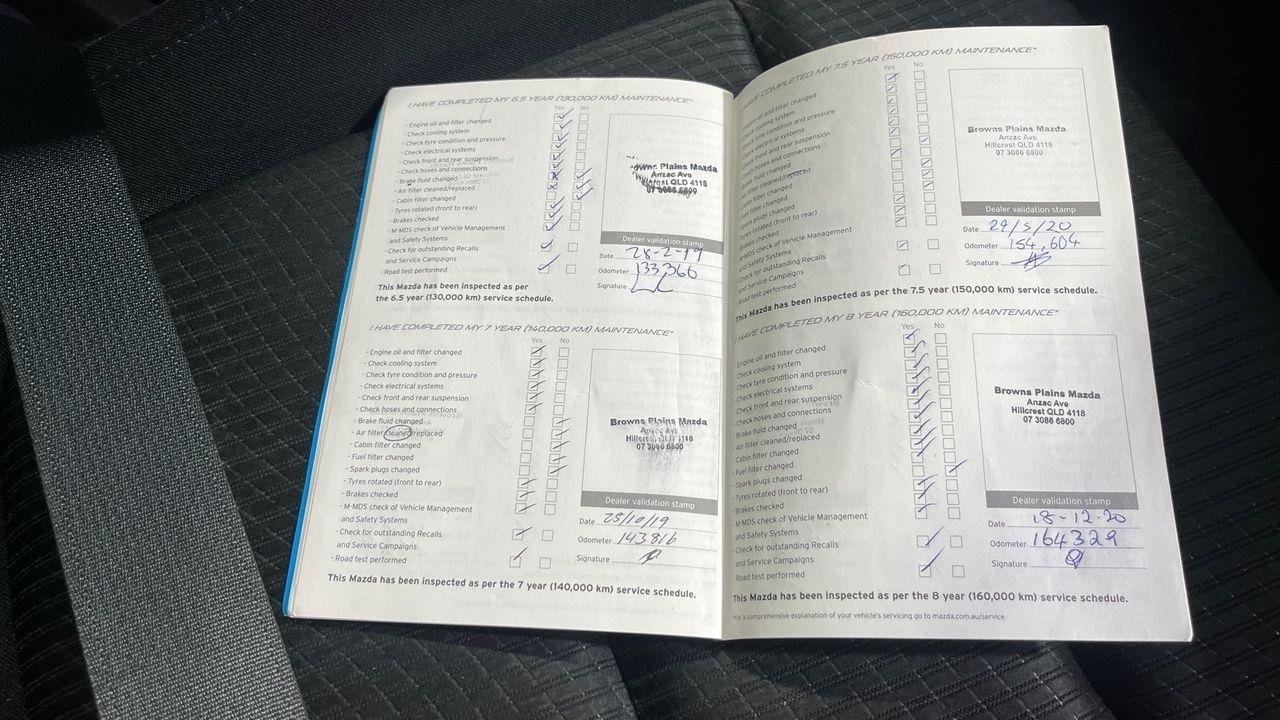 I HAVE COMPLETED MY 6.5 YEAR (130,000 KM) MAINTENANCE*
Yes No
- Engine oil and filter changed
- Check cooling system
- Check tyre condition and pressure
- Check electrical systems
- Check front and rear suspension
- Check hoses and connections
- Brake fluid changed
- Air filter cleaned/replaced
- Cabin filter changed
- Tyres rotated (front to rear)
- Brakes checked
- M-MDS check of Vehicle Management
and Safety Systems
- Check for outstanding Recalls
and Service Campaigns
- Road test performed
Plains Mazda
Anzac Ave
QLD 4118
07 3086 6800
Dealer validation stamp
Date 28-2-19
Odometer 133,366
Signature
This Mazda has been inspected as per
the 6.5 year (130,000 km) service schedule.
I HAVE COMPLETED MY 7 YEAR (140,000 KM) MAINTENANCE*
Yes No
- Engine oil and filter changed
- Check cooling system
- Check tyre condition and pressure
- Check electrical systems
- Check front and rear suspension
- Check hoses and connections
- Brake fluid changed
- Air filter cleaned/replaced
- Cabin filter changed
- Fuel filter changed
- Spark plugs changed
- Tyres rotated (front to rear)
- Brakes checked
- M-MDS check of Vehicle Management
and Safety Systems
- Check for outstanding Recalls
and Service Campaigns
- Road test performed
Browns Plains Mazda
Hillcrest 4118
07 3086 6800
Dealer validation stamp
Date 25/10/19
Odometer 143816
Signature
This Mazda has been inspected as per the 7 year (140,000 km) service schedule.
I HAVE COMPLETED MY 7.5 YEAR (150,000 KM) MAINTENANCE*
Yes No
- Engine oil and filter changed
- Check cooling system
- Check tyre condition and pressure
- Check electrical systems
- Check front and rear suspension
- Check hoses and connections
- Brake fluid changed
- Air filter cleaned/replaced
- Cabin filter changed
- Fuel filter changed
- Spark plugs changed
- Tyres rotated (front to rear)
- Brakes checked
- M-MDS check of Vehicle Management
and Safety Systems
- Check for outstanding Recalls
and Service Campaigns
- Road test performed
Browns Plains Mazda
Anzac Ave
Hillcrest QLD 4118
07 3086 6800
Dealer validation stamp
Date 29/5/20
Odometer 154,604
Signature
This Mazda has been inspected as per the 7.5 year (150,000 km) service schedule.
I HAVE COMPLETED MY 8 YEAR (160,000 KM) MAINTENANCE*
Yes No
- Engine oil and filter changed
- Check cooling system
- Check tyre condition and pressure
- Check electrical systems
- Check front and rear suspension
- Check hoses and connections
- Brake fluid changed
- Air filter cleaned/replaced
- Cabin filter changed
- Fuel filter changed
- Spark plugs changed
- Tyres rotated (front to rear)
- Brakes checked
- M-MDS check of Vehicle Management
and Safety Systems
- Check for outstanding Recalls
and Service Campaigns
- Road test performed
Browns Plains Mazda
Anzac Ave
Hillcrest QLD 4118
07 3086 6800
Dealer validation stamp
Date 18-12-20
Odometer 164329
Signature
This Mazda has been inspected as per the 8 year (160,000 km) service schedule.
*For a comprehensive explanation of your vehicle's servicing go to mazda.com.au/service